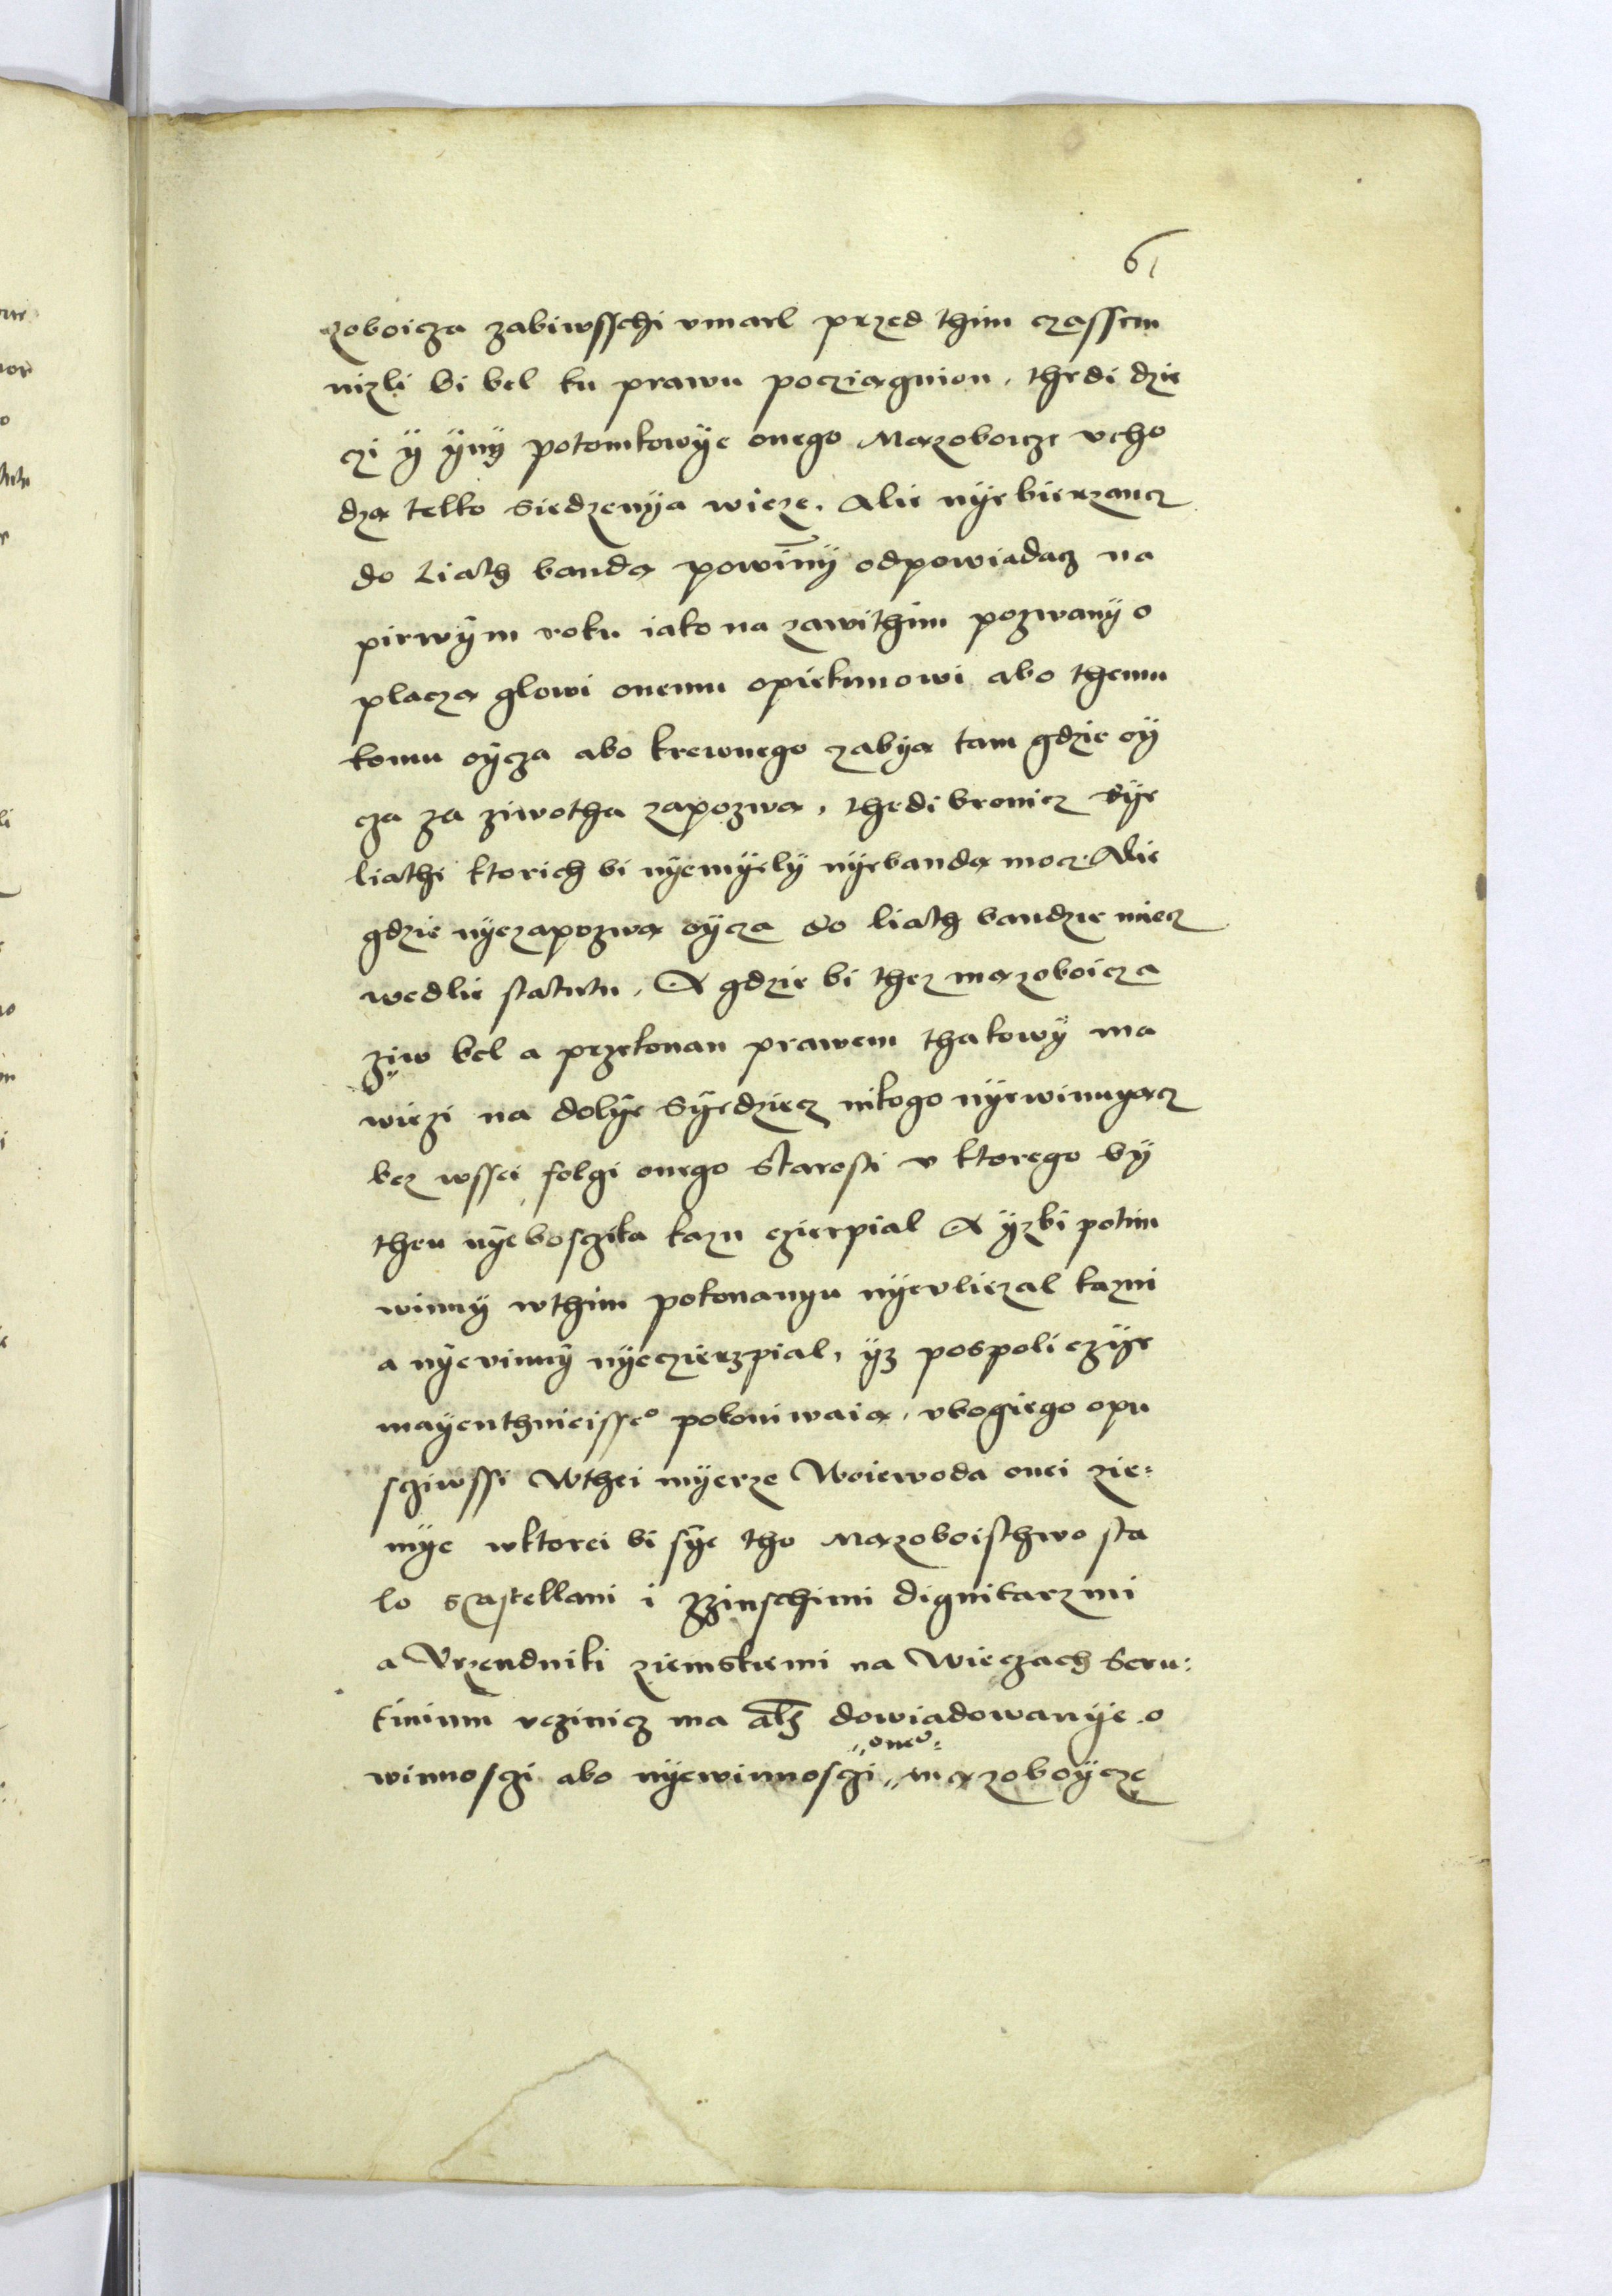 61
zoboicza zabiwsschi vmarl przed thim czassem
nizli bi bel ku prawu pocziągnion, thedi dzie
czi ÿ ÿnÿ potomkowÿe onego Mązoboicze vcho
dzą telko siedzenÿa wieze, Alie nÿebierzancz
do Liath bandą powinnÿ odpowiadacz na
pirwÿm roku iako na zawithim pozwanÿ o
placzą glowi onemu opiekunowi abo themu
komu oÿcza abo krewnego zabÿą tam gdzie oÿ
cza za ziwotha zapozwą, thedi bronicz sÿe
liathi ktorich bi nÿemÿelÿ nÿebandą mocz. Alie
gdzie nÿezapozwą oÿcza do liath bandzie miecz
wedlie statutu, A gdzie bi thez mązoboicza
zÿiw bel a przekonan prawem thakowÿ ma
wiezi na dolÿe sÿedziecz nikogo nÿewinuyącz
bez wssei folgi onego Starosti v ktorego bÿ
then nÿeboszika kazn czierpial A ÿzbi potim
winnÿ wthim pokonanyu nÿevliezal kazni
a nÿevinnÿ nÿeczierzpial, ÿz pospoliczÿe
mayenthnieisseo pokoniwaią, vbogiego opu
scziwssi Wthei mÿerze Woiewoda onei zie:
mÿe wktorei bi sÿe tho Mązoboisthwo sta
lo s Castellani i zzinschimi dignitarzmi
a Vrzendniki ziemskiemi na Wieczach Scru:
tinium vczinicz ma alb dowiadowanÿe o
oneo
winnosczi abo nÿewinnosczi mązoboÿcze